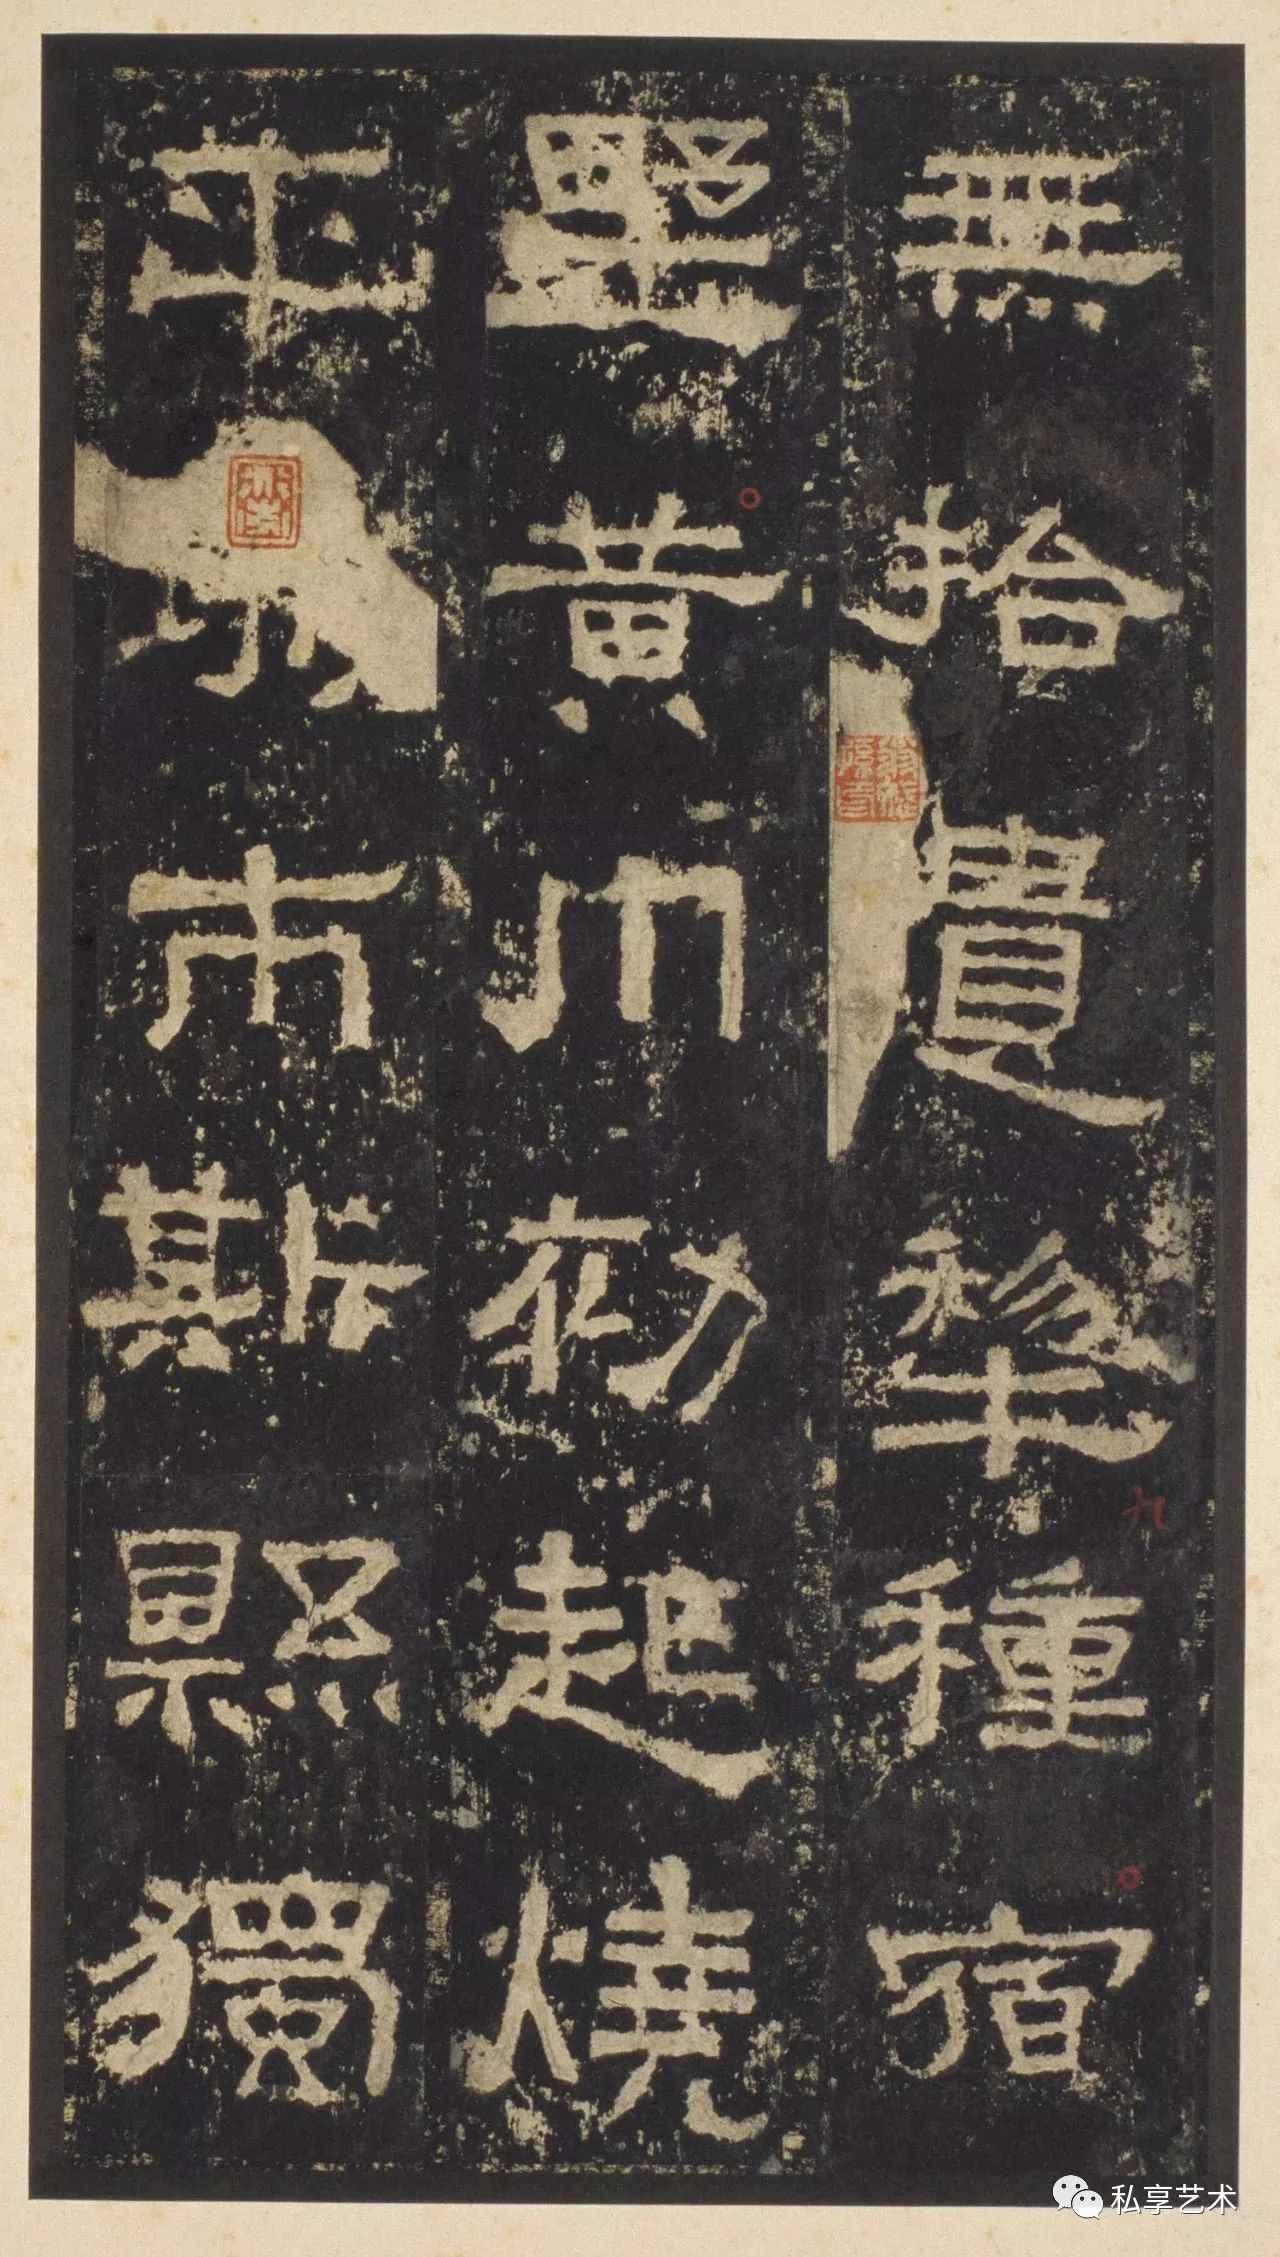 無拾遺犂種宿
野黃巾初起燒
平市斯縣獨
九
私享艺术